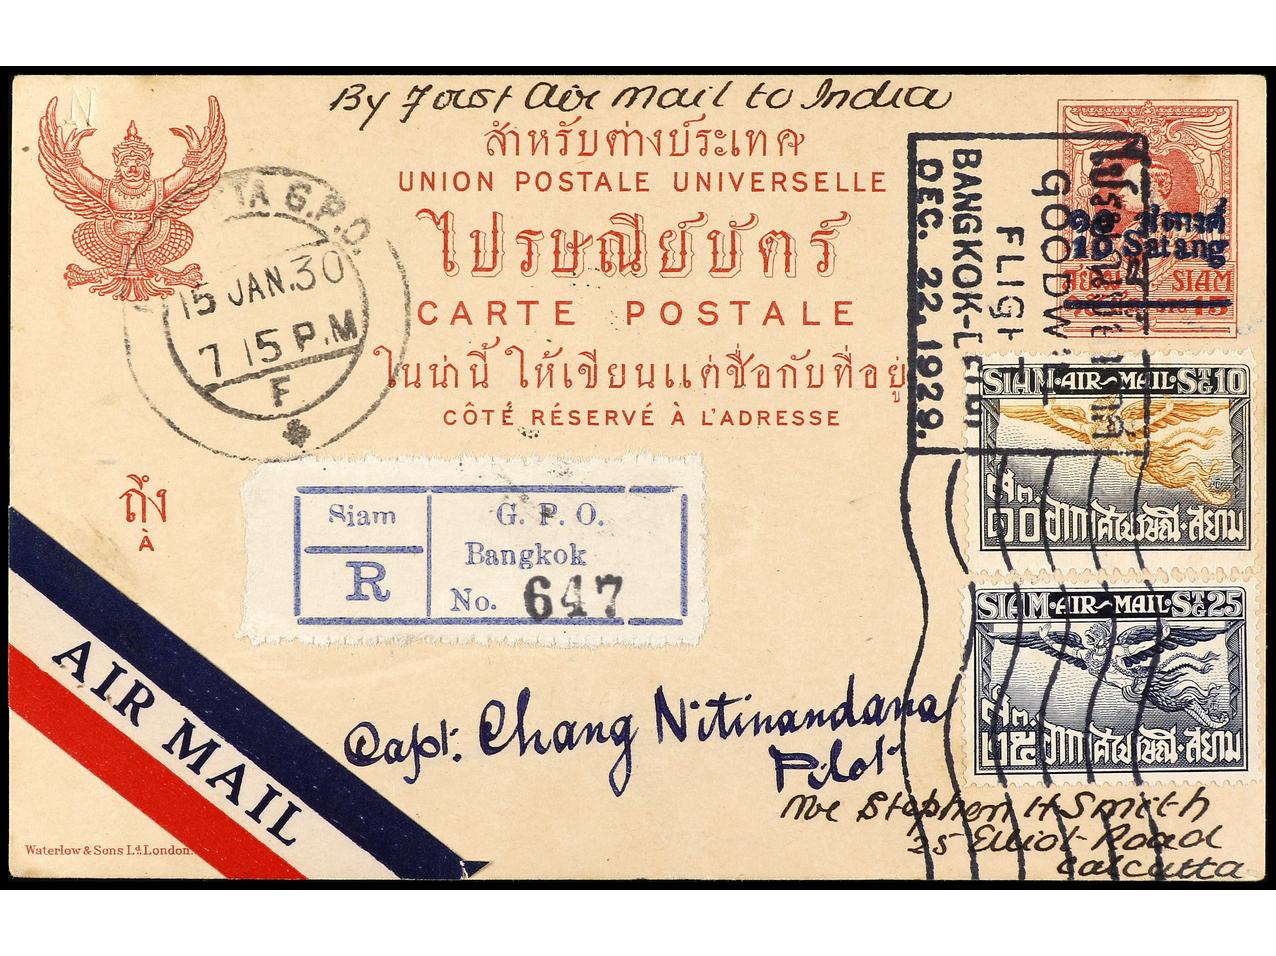 By First Air Mail to India
สำหรับต่างประเทศ
UNION POSTALE UNIVERSELLE
ไปรษณีย์บัตร์
CARTE POSTALE
ในน่านี้ ให้เขียนแต่ชื่อกับที่อยู่
CÔTÉ RÉSERVÉ À L'ADRESSE
N
G.P.O.
15 JAN.30
7 15 P.M
F
GOODW
FLIGHT
BANGKOK-
DEC. 22. 1929.
10 Satang
SIAM
15
SIAM·AIR~MAIL·STG10
สต.
๑๐ อากาศไปรษณีย์·สยาม
SIAM·AIR~MAIL·STG25
สต.
๒๕ อากาศไปรษณีย์·สยาม
ถึง
À
Siam
R
G. P. O.
Bangkok
No. 647
AIR MAIL
Capt. Chang Nitinandana
Pilot
Mr Stephen H Smith
25 Elliot Road
Calcutta
Waterlow & Sons Ld. London.